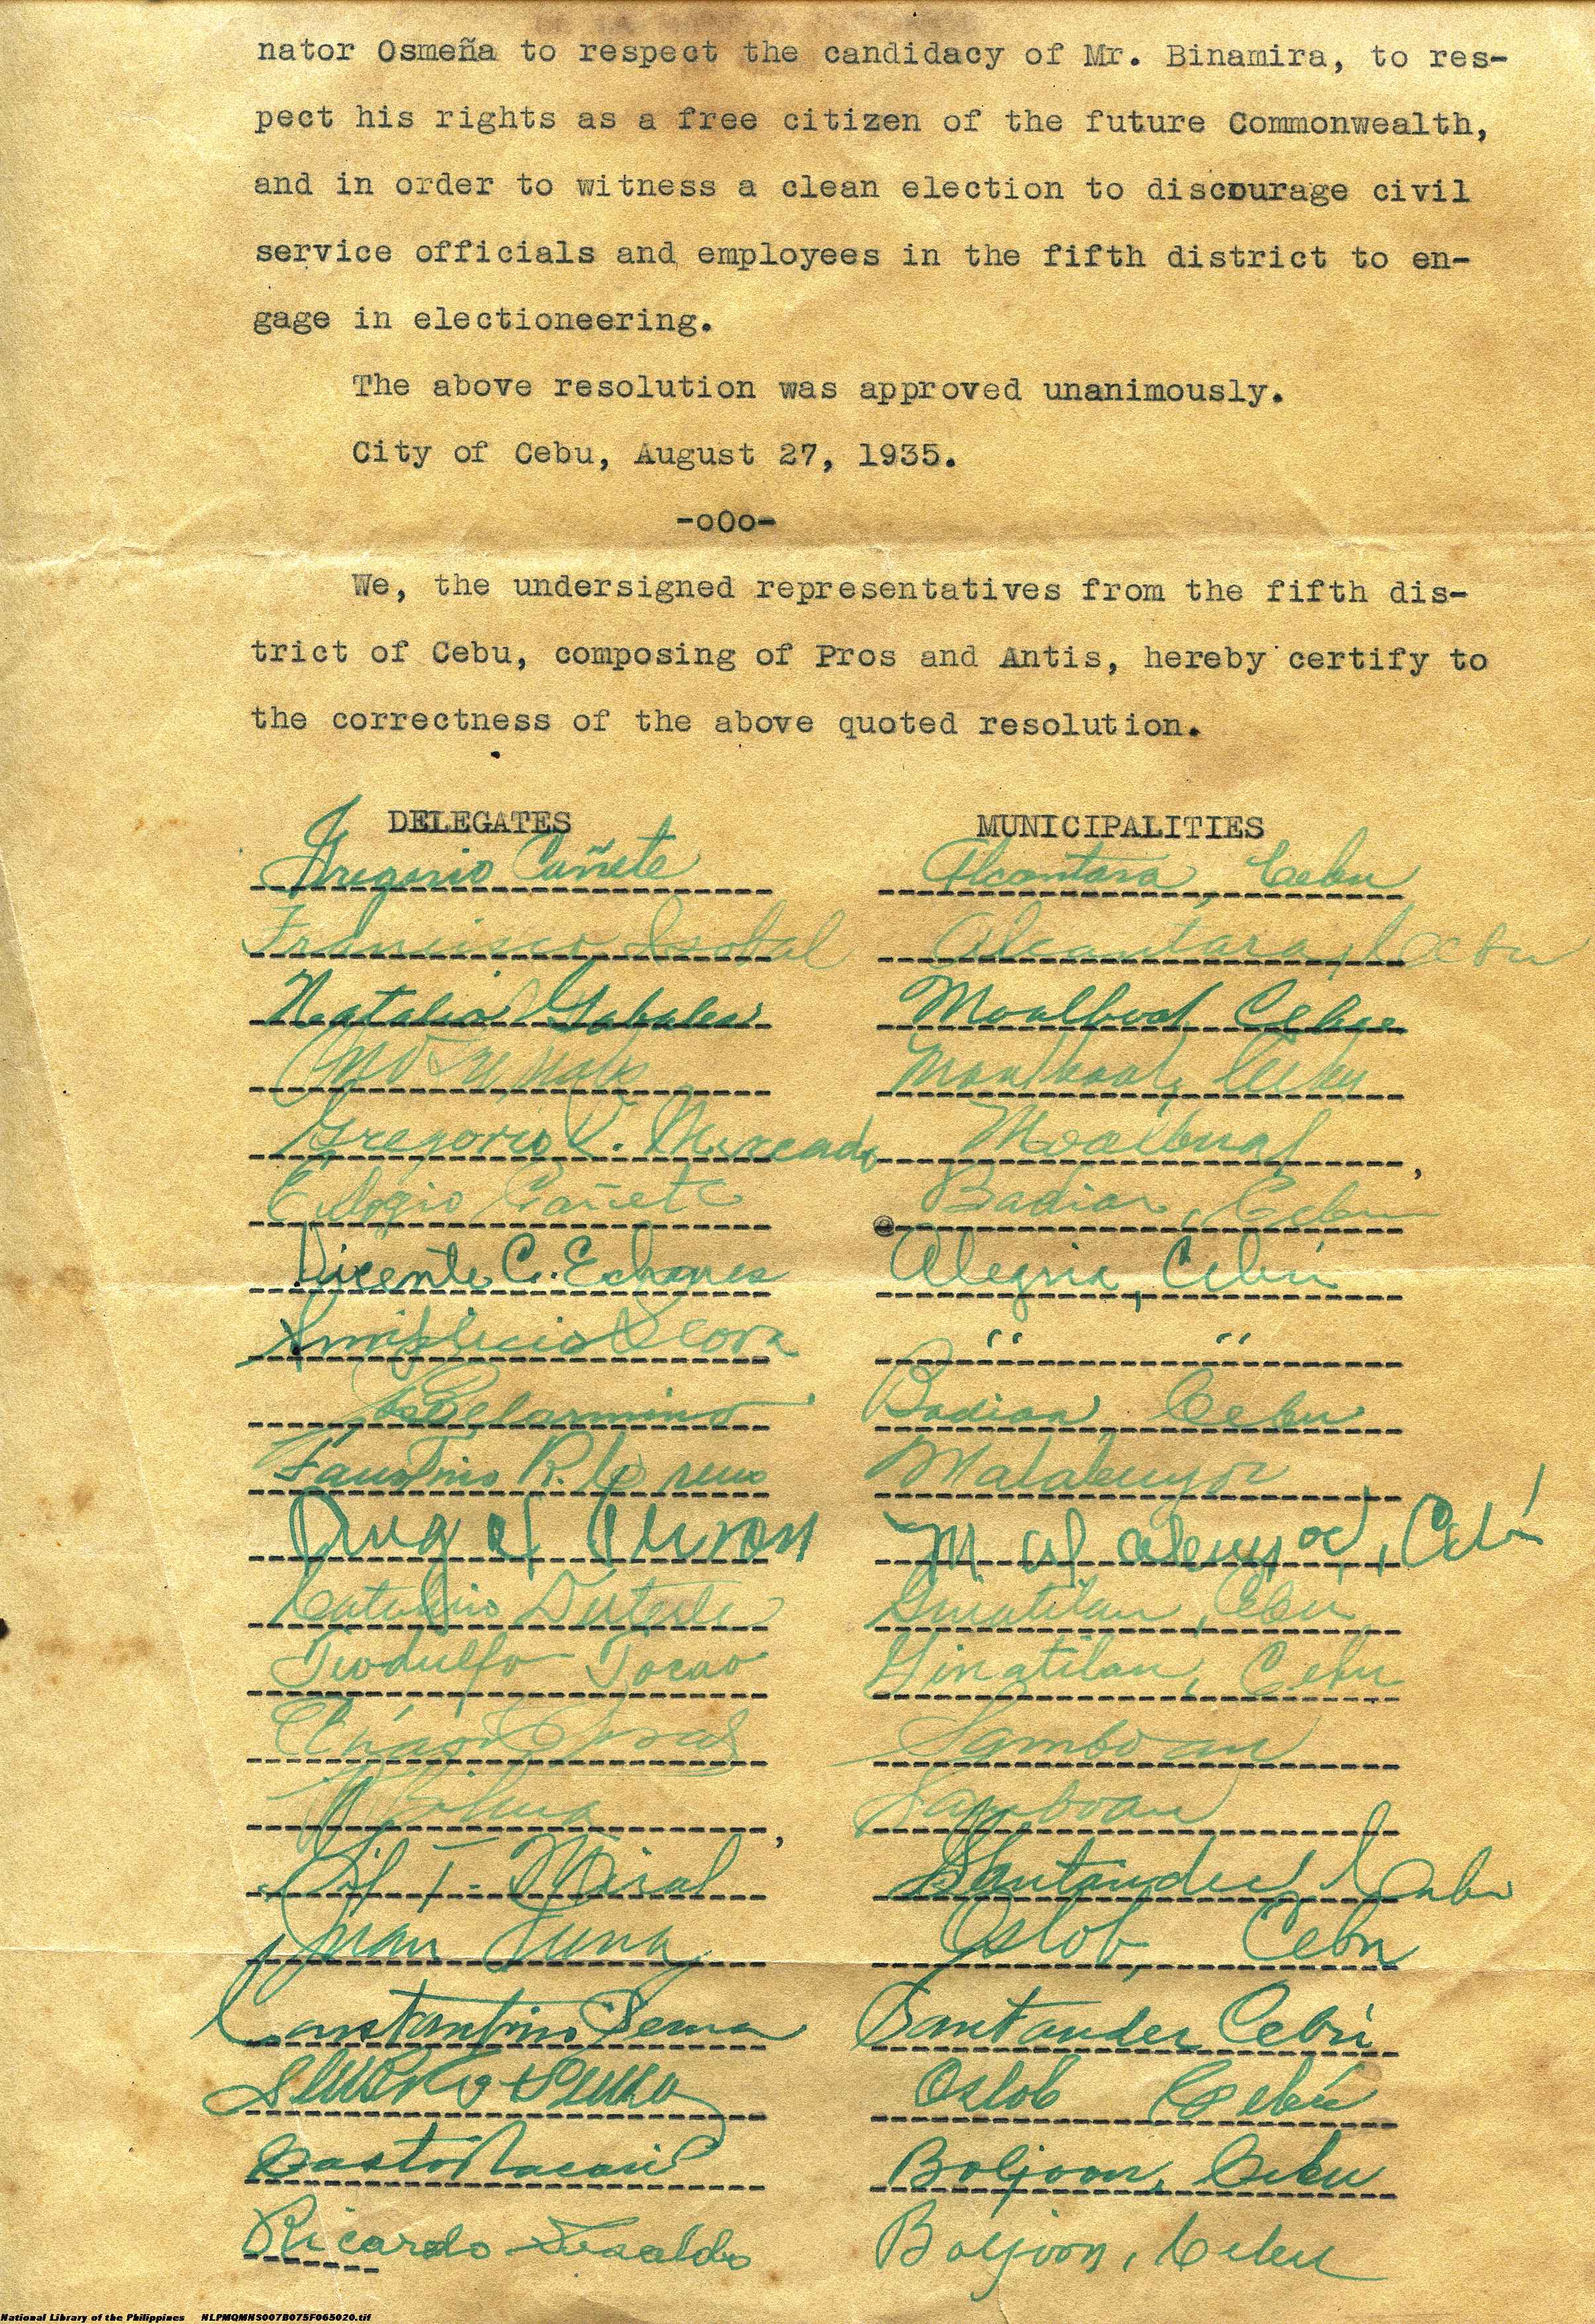 nator Osmeña to respect the candidacy of Mr. Binamira, to res-
pect his rights as a free citizen of the future Commonwealth,
and in order to witness a clean election to discourage civil
service officials and employees in the fifth district to en-
gage in electioneering.
The above resolution was approved unanimously.
City of Cebu, August 27, 1935.
-oOo-
We, the undersigned representatives from the fifth dis-
trict of Cebu, composing of Pros and Antis, hereby certify to
the correctness of the above quoted resolution.
DELEGATES MUNICIPALITIES
Gregorio Cañete Alcantara, Cebu
Francisco Alcantara, Cebu
Natalio Moalboal Cebu
Moalboal, Cebu
Gregorio Mercado Moalboal
Eulogio Cañete Badian, Cebu
Vicente C. Alegria, Cebu
Simplicio " "
Belarmino Badian, Cebu
Faustino R. Malabuyoc
Malabuyoc, Cebú
Catalino Ginatilan, Cebu
Teodulfo Tocao Ginatilan, Cebu
Samboan
Samboan
Gil T. Miral Santander, Cebu
Juan Tuna Oslob, Cebu
Constantino Santander Cebú
Oslob Cebú
Boljoon, Cebu
Ricardo Boljoon, Cebu
National Library of the Philippines NLPMQMNS007B075F065020.tif